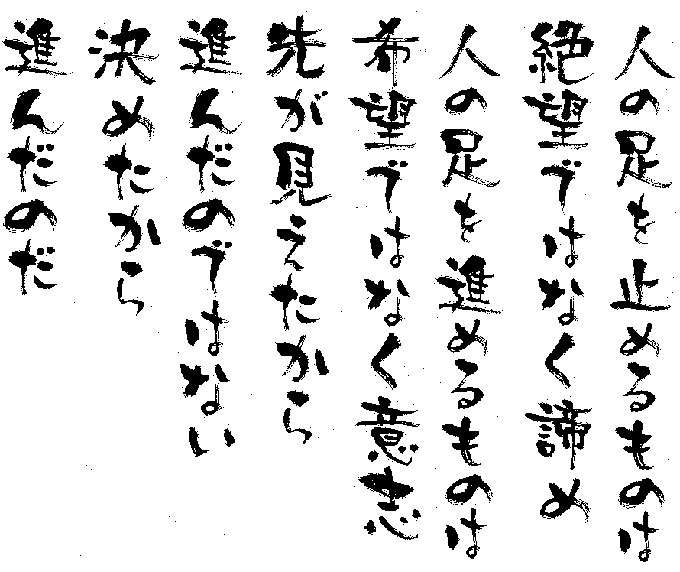 人の足を止めるものは
絶望ではなく諦め
人の足を進めるものは
希望ではなく意志
先が見えたから
進んだのではない
決めたから
進んだのだ